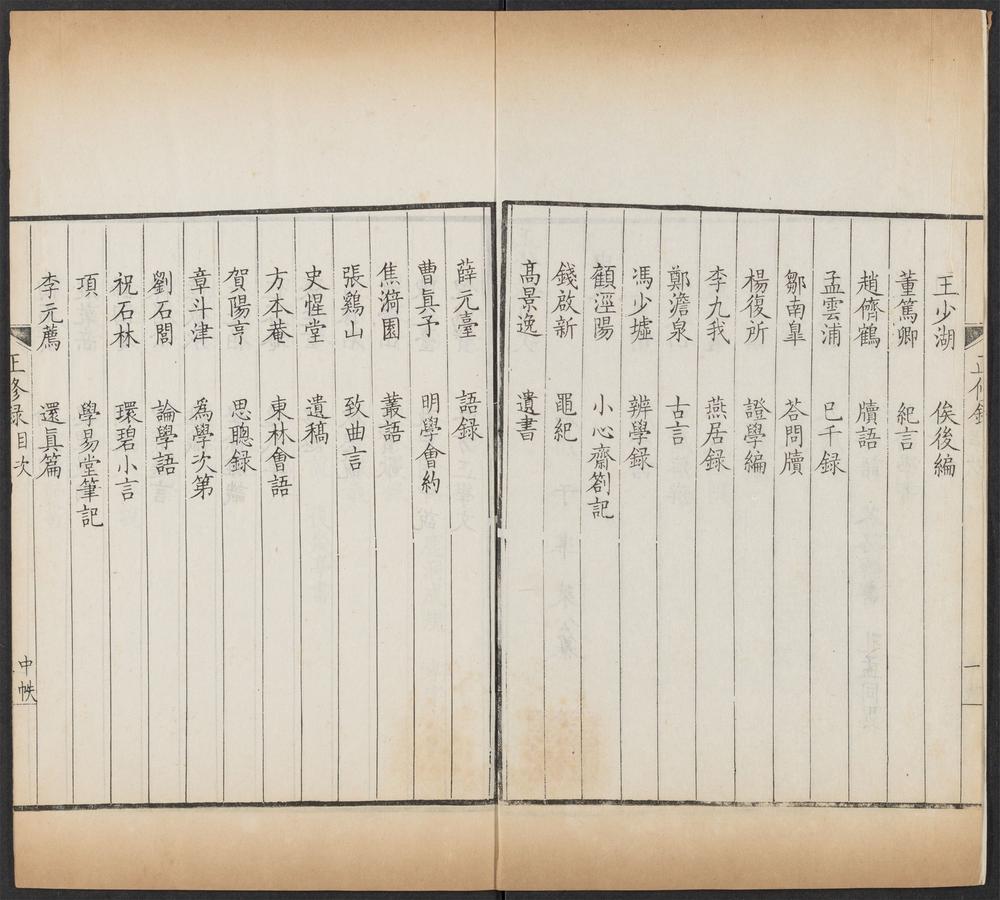 王少湖 俟後編
董篤卿 紀言
趙儕鶴 牘語
孟雲浦 已千錄
鄒南臯 荅問牘
楊復所 證學編
李九我 燕居錄
鄭澹泉 古言
馮少墟 辨學錄
顧涇陽 小心齋劄記
錢啟新 黽紀
高景逸 遺書
薛元臺 語錄
曹眞予 明學會約
焦漪園 叢語
張鷄山 致曲言
史惺堂 遺稿
方本菴 東林會語
賀陽亨 思聰錄
章斗津 爲學次第
劉石閭 論學語
祝石林 環碧小言
項 學易堂筆記
李元薦 還眞篇
正修録目次 中帙